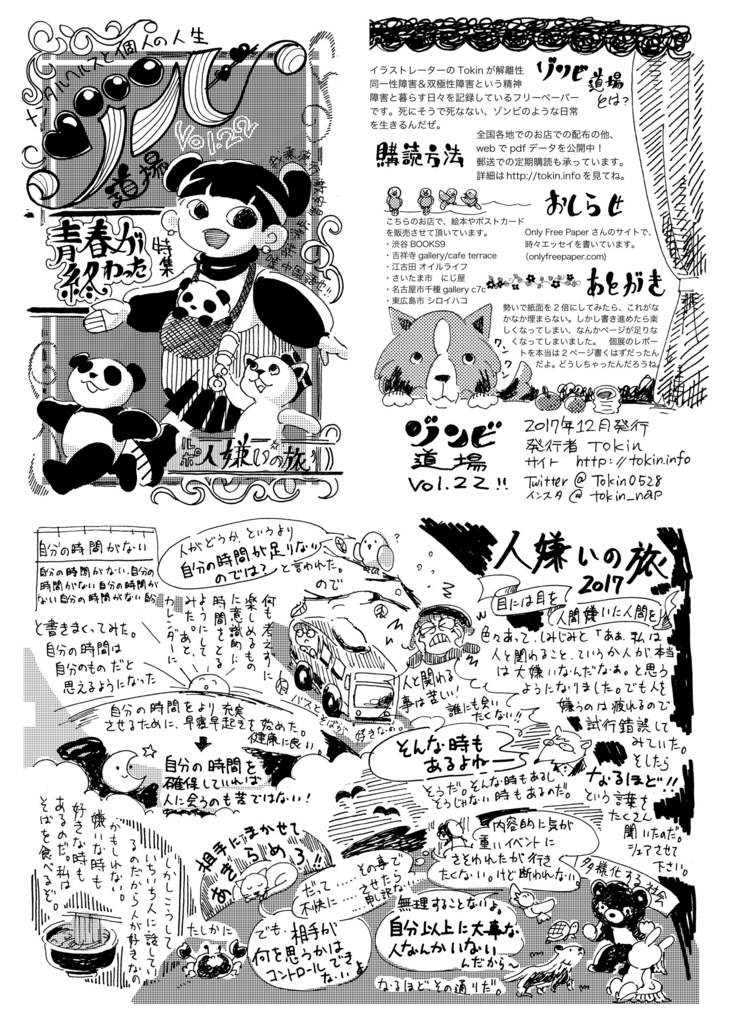 メンタルヘルスと個人の人生
ゾンビ
道場
Vol.22
特集
青春が
終わった
ルポ 人嫌いの旅
イラストレーターの Tokin が解離性
同一性障害&双極性障害という精神
障害と暮らす日々を記録しているフリーペーパー
です。死にそうで死なない、ゾンビのような日常
を生きるんだぜ。
ゾンビ道場
とは?
購読方法
全国各地でのお店での配布の他、
web で pdf データを公開中!
郵送での定期購読も承っています。
詳細は http://tokin.info を見てね。
おしらせ
こちらのお店で、絵本やポストカード
を販売させて頂いています。
・渋谷 BOOKS9
・吉祥寺 gallery/cafe terrace
・江古田 オイルライフ
・さいたま市 にじ屋
・名古屋市千種 gallery c7c
・東広島市 シロイハコ
Only Free Paper さんのサイトで、
時々エッセイを書いています。
(onlyfreepaper.com)
あとがき
勢いで紙面を 2 倍にしてみたら、これがな
かなか埋まらない。しかし書き進めたら楽
しくなってしまい、なんかページが足りな
くなってしまいました。 個展のレポー
トを本当は 2 ページ書くはずだったん
だよ。どうしちゃったんだろうね。
ワンワン
ゾンビ
道場
Vol.22!!
2017年12月発行
発行者 Tokin
サイト http://tokin.info
Twitter @ Tokin0528
インスタ @ tokin_nap
人嫌いの旅
2017
目には目を
人間嫌いに人間を
色々あって、しみじみと「あぁ、私は
人と関わること、ていうか人が本当
は大嫌いなんだなぁ。と思う
ようになりました。でも人を
嫌うのは疲れるので
試行錯誤して
みていた。
そしたら
なるほど!!
という言葉を
たくさん
聞いたのだ。
シェアさせて
下さい。
人と関わる
事は苦しい!
誰にも会い
たくない!!
そんな時も
あるよねー
そうだ。そんな時もあるし、
そうじゃない時もあるのだ。
人がどうか、というより
自分の時間が足りない
のでは?と言われた。
ので
自分の時間がない
自分の時間がない.自分の
時間がない自分の時間が
ない自分の時間がない
と書きまくってみた。
自分の時間は
自分のものだと
思えるようになった
何も考えずに
楽しめるもの
に意識的に
時間をとる
ようにして
みた。あと、
カレンダーに
バスと
そばが
好きなの。
自分の時間をより充実
させるために、早寝早起きを始めた。
健康に良い。
自分の時間を
確保していれば
人に会うのも苦ではない!
内容的に気が
重いイベントに
さそわれたが行き
たくない。けど断われない。
多様化する社会
無理することないよ。
自分以上に大事な
人なんかいない
んだから〜
なるほどその通りだ。
だって……その事で
不快に……させたら
申し訳ない
相手にまかせて
あきらめろ!!
でも、相手が
何を思うかは
コントロールでき
ないよ
たしかに
しかしこうして
いちいち人に話してい
るのだから人が好きなの
かもしれない。
嫌いな時も
好きな時も
あるのだ。私は
そばを食べるぞ。